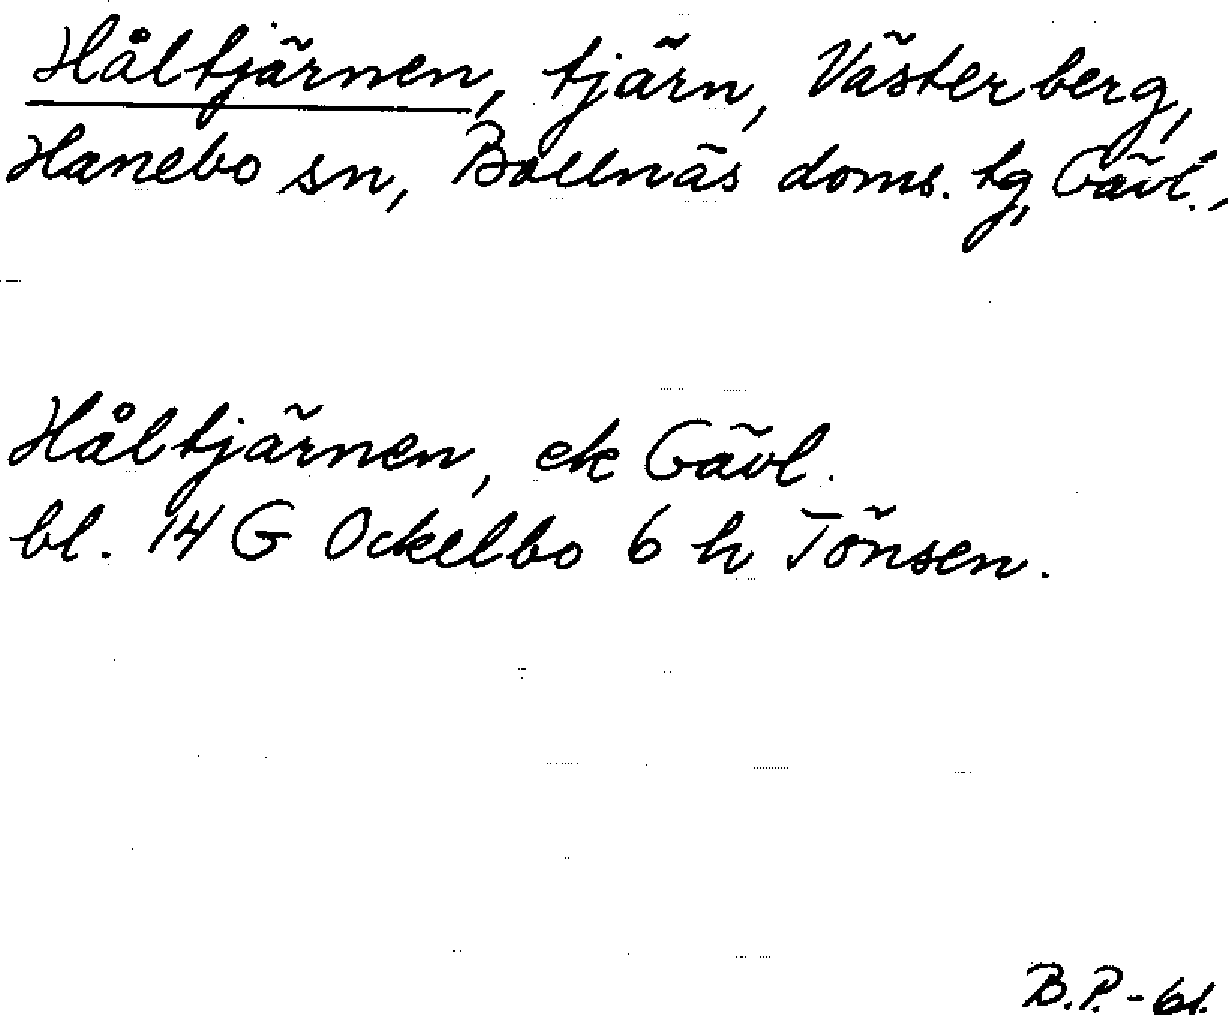 Håltjärnen, tjärn, Västerberg,
Hanebo sn, Bollnäs doms. tg, Gävl.,
Håltjärnen, ek Gävl.
bl. 14 G Ockelbo 6 h Tönsen.
B.P.-61.